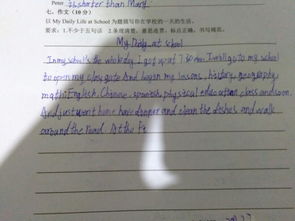 Peter is shorter than Mary.
七、作文(10分)
以 My Daily Life at School 为题描写你在学校的一天的生活。
要求: 1.不少于五句话 2.条理清楚，意思连贯，标点正确，书写规范。
My Daily at school
In my school's the whole day. I get up at I go to my school
to open my class And began my lessons, history, geography
math, English, Chinese, spanish, physical education class and soon.
And just went home have dinner and clean the dishes and walk
around the road. At the